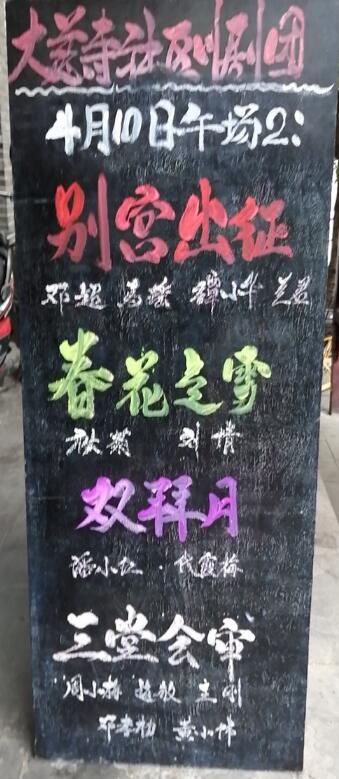 大慈寺社区川剧团
4月10日午场2:
别宫出征
邓超 马 谭小华
春花之雪
秋菊 刘倩
双拜月
潘小红·代霞梅
三堂会审
周小梅 赵敏 王刚
黄小伟